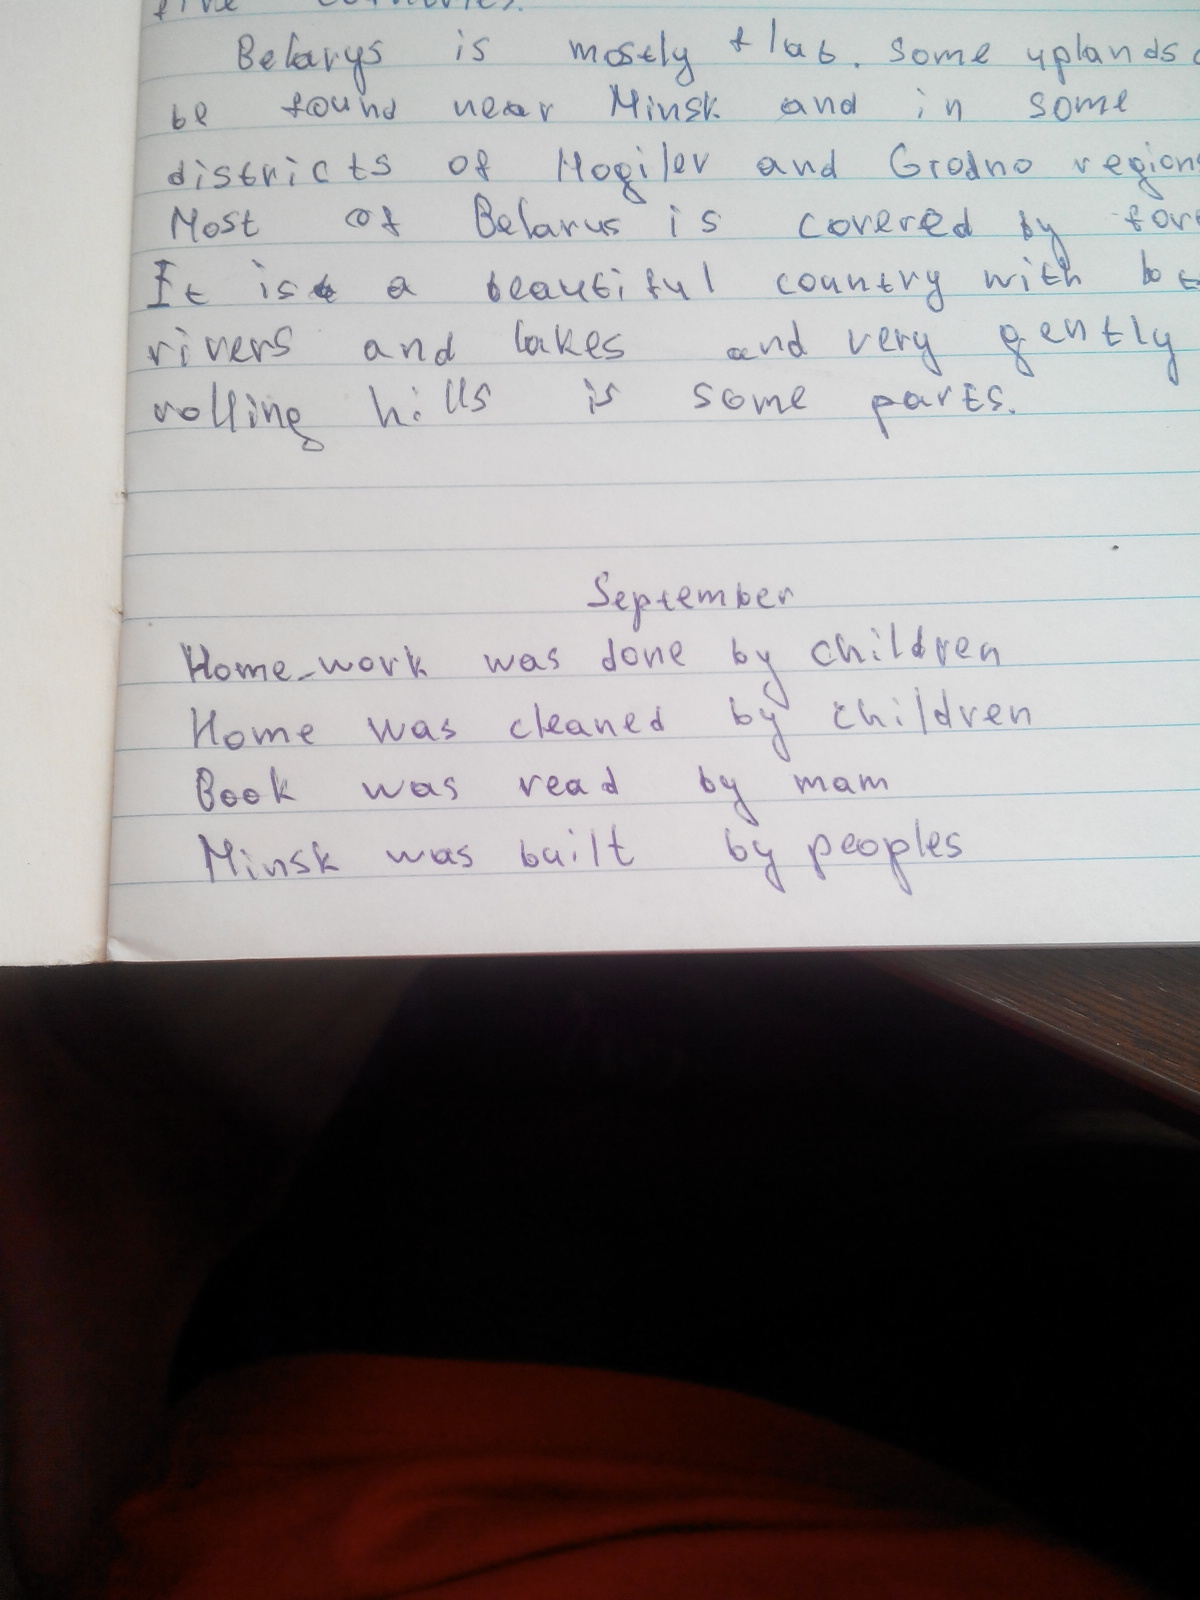 five countries.
Belarys is mostly flat. Some uplands
be found near Minsk and in some
districts of Mogilev and Grodno regions
Most of Belarus is covered by
It is a beautiful country with
rivers and lakes and very gently
rolling hills is some parts.
September
Home-work was done by children
Home was cleaned by children
Book was read by mam
Minsk was built by peoples